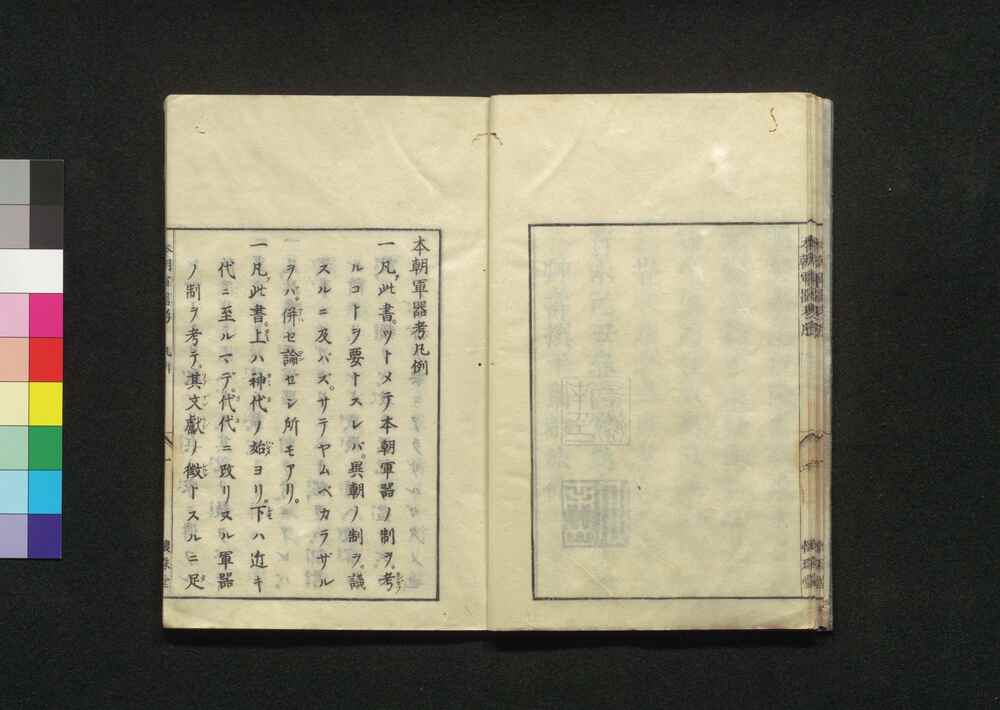 本朝軍器考凡例
一凡此書ツトメテ本朝軍器ノ制ヲ考
ルコトヲ要トスレバ異朝ノ制ヲ議
スルニ及バズ。サテヤムベカラザル
ヲバ併セ論ゼン所モアリ。
一凡此書上ハ神代ノ始ヨリ下ハ近キ
代ニ至ルマデ代代ニ改リヌル軍器
ノ制ヲ考テ其文獻ノ徴トスルニ足